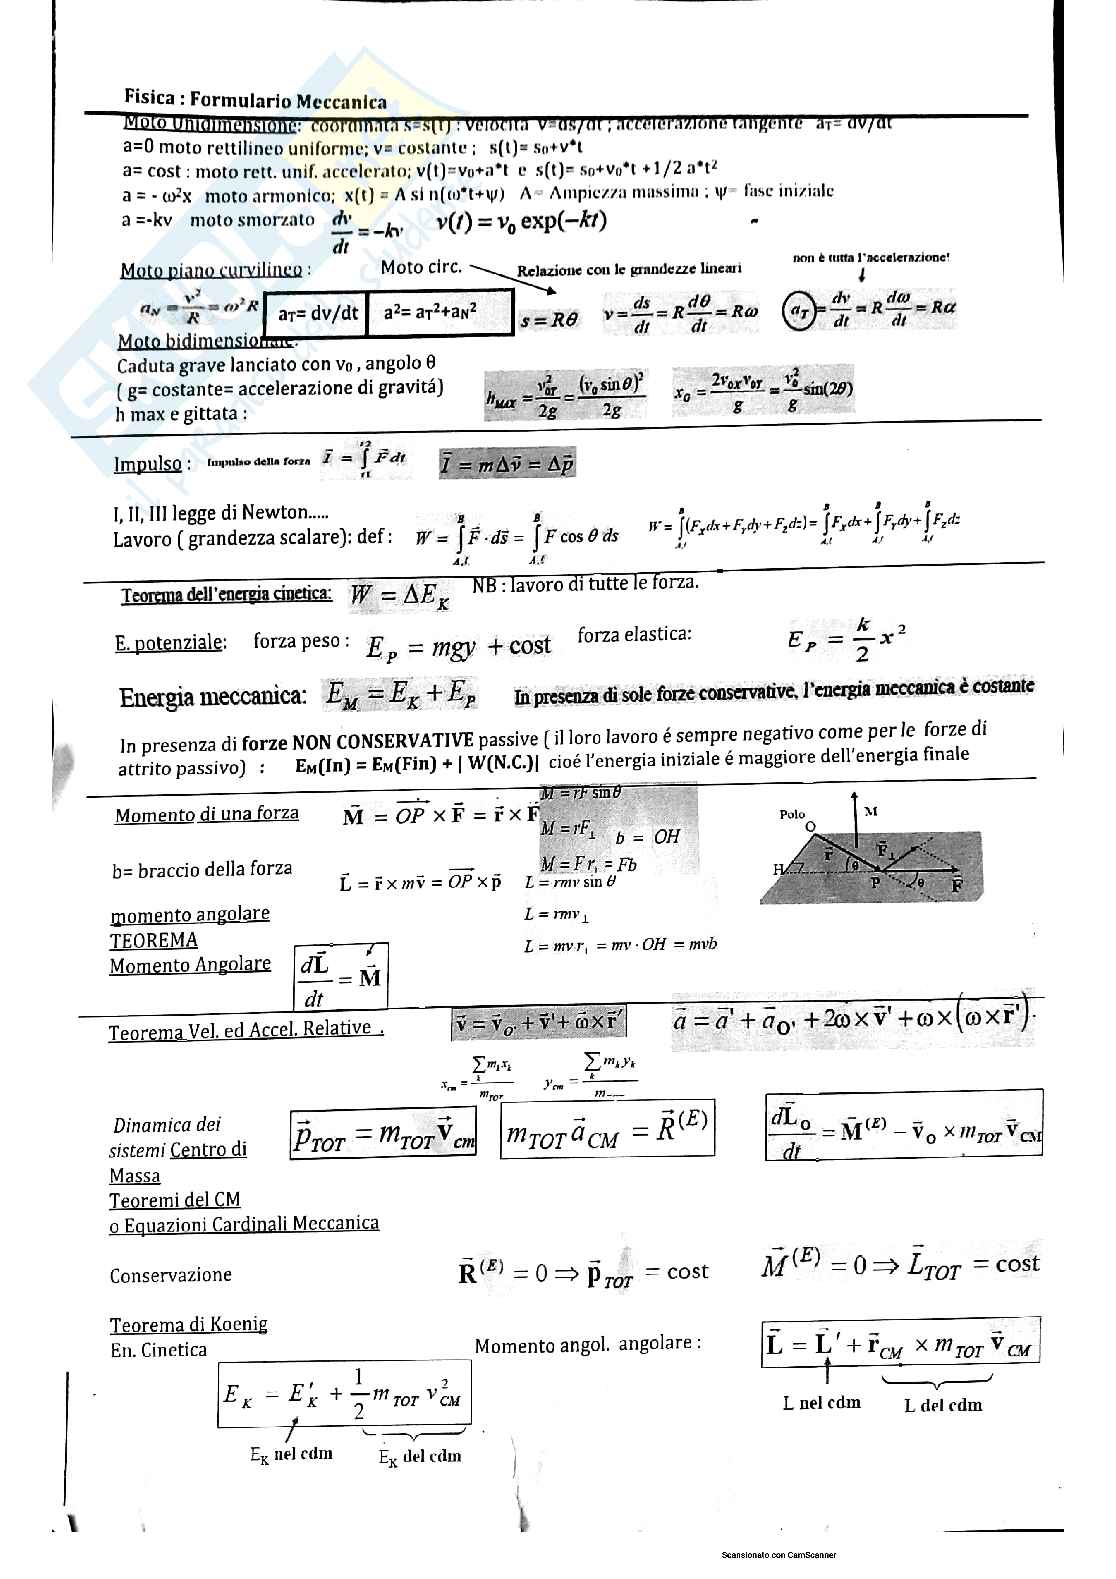 Fisica : Formulario Meccanica
Moto Unidimensione: coordinata s=s(t) ; velocita v=ds/dt ; accelerazione tangente aT= dv/dt
a=0 moto rettilineo uniforme; v= costante ; s(t)= s₀+v*t
a= cost : moto rett. unif. accelerato; v(t)=v₀+a*t e s(t)= s₀+v₀*t +1/2 a*t²
a = - ω²x moto armonico; x(t) = A si n(ω*t+ψ) A= Ampiezza massima ; ψ= fase iniziale
a =-kv moto smorzato dv/dt = -kv v(t) = v₀ exp(-kt)
Moto piano curvilineo : Moto circ. Relazione con le grandezze lineari non è tutta l'accelerazione!
a_N = v²/R = ω²R aT= dv/dt a²= aT²+aN² s = Rθ v = ds/dt = R dθ/dt = Rω a_T = dv/dt = R dω/dt = Rα
Moto bidimensionale:
Caduta grave lanciato con v₀ , angolo θ
( g= costante= accelerazione di gravitá)
h max e gittata : h_MAX = v²_0Y/2g = (v₀ sin θ)²/2g x₀ = 2v_0X v_0Y/g = v₀²/g sin(2θ)
Impulso : Impulso della forza I⃗ = ∫_t1^t2 F⃗ dt I⃗ = mΔv⃗ = Δp⃗
I, II, III legge di Newton.....
Lavoro ( grandezza scalare): def : W = ∫_A,l^B F⃗ · ds⃗ = ∫_A,l^B F cos θ ds W = ∫_A,l^B (F_x dx + F_y dy + F_z dz) = ∫_A,l^B F_x dx + ∫_A,l^B F_y dy + ∫_A,l^B F_z dz
Teorema dell'energia cinetica: W = ΔE_K NB : lavoro di tutte le forza.
E. potenziale: forza peso : E_P = mgy + cost forza elastica: E_P = k/2 x²
Energia meccanica: E_M = E_K + E_P In presenza di sole forze conservative, l'energia meccanica è costante
In presenza di forze NON CONSERVATIVE passive ( il loro lavoro é sempre negativo come per le forze di
attrito passivo) : EM(In) = EM(Fin) + | W(N.C.)| cioé l'energia iniziale é maggiore dell'energia finale
Momento di una forza M⃗ = OP × F⃗ = r⃗ × F⃗
M = rF sin θ
M = rF⊥ b = OH
M = F r₁ = Fb
Polo O M r⃗ F⃗⊥ H θ P θ F⃗
b= braccio della forza L⃗ = r⃗ × mv⃗ = OP × p⃗ L = rmv sin θ
momento angolare L = rmv⊥
TEOREMA
Momento Angolare dL⃗/dt = M⃗ L = mv r₁ = mv · OH = mvb
Teorema Vel. ed Accel. Relative . v⃗ = v⃗_O' + v⃗' + ω⃗ × r⃗' a⃗ = a⃗' + a⃗_O' + 2ω × v⃗' + ω × (ω × r⃗')
x_cm = Σ_k m_k x_k / m_TOT y_cm = Σ_k m_k y_k / m
Dinamica dei
sistemi Centro di
Massa
p⃗_TOT = m_TOT v⃗_cm m_TOT a⃗_CM = R⃗^(E) dL⃗_O/dt = M⃗^(E) − v⃗_O × m_TOT v⃗_CM
Teoremi del CM
o Equazioni Cardinali Meccanica
Conservazione R⃗^(E) = 0 ⇒ p⃗_TOT = cost M⃗^(E) = 0 ⇒ L⃗_TOT = cost
Teorema di Koenig
En. Cinetica Momento angol. angolare : L⃗ = L⃗' + r⃗_CM × m_TOT v⃗_CM
E_K = E'_K + 1/2 m_TOT v²_CM L nel cdm L del cdm
E_K nel cdm E_K del cdm
Scansionato con CamScanner